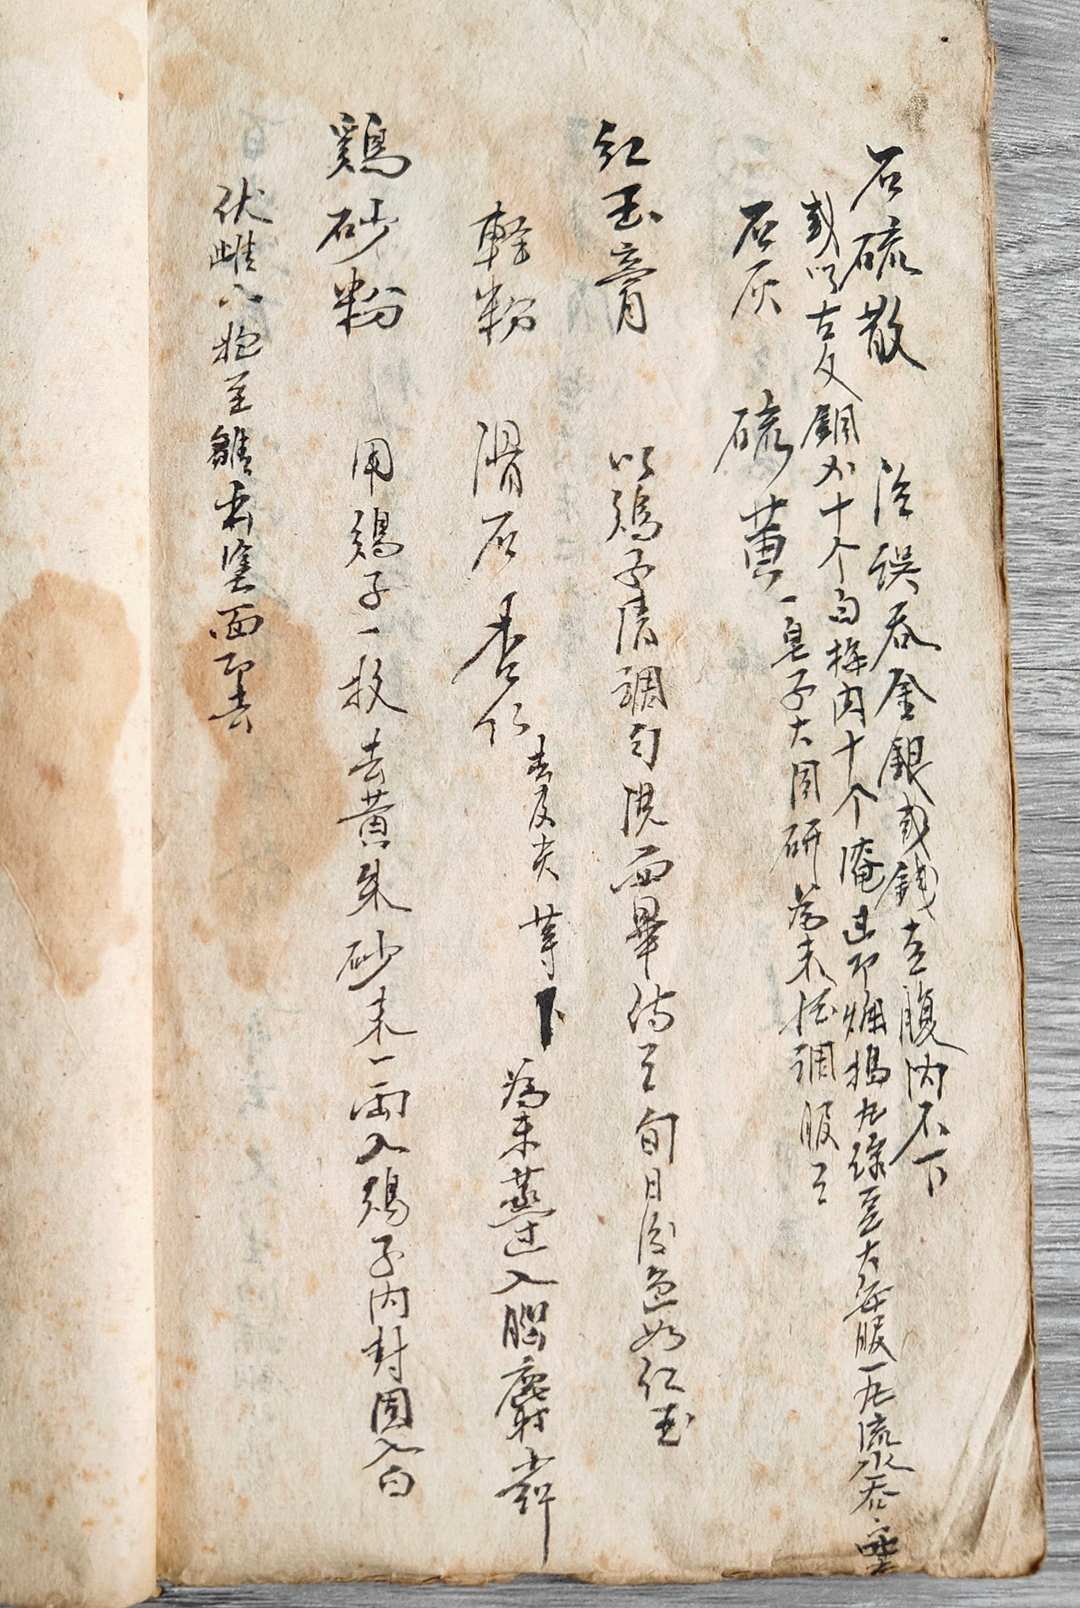 石硫散 治誤吞金銀或錢在腹內不下
或以古文銅錢十个白梅肉十个淹過即爛搗丸綠豆大每服一丸流水吞
石灰 硫黃一皂子大同研為末酒調服之
紅玉膏 以鷄子清調勻洗面畢傅之旬日後色如紅玉
輕粉 滑石 杏仁去皮尖等下為末蒸過入腦麝少許
鷄砂粉 用鷄子一枚去黃朱砂末一兩入鷄子內封固入白
伏雌下抱至雛出塗面即去